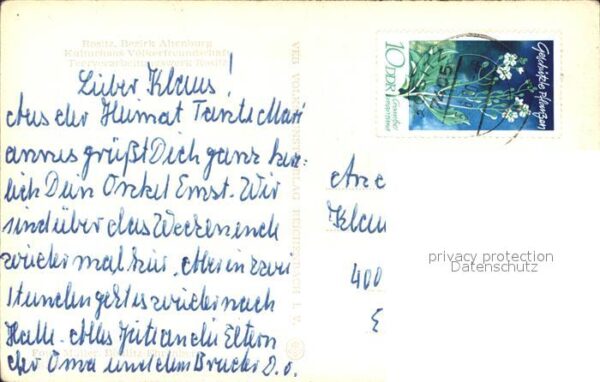 Rositz, Bezirk Altenburg
Kulturhaus Völkerfreundschaft
Teerverarbeitungswerk Rositz
Lieber Klaus!
Aus der Heimat Tante Mari
annes grüßt Dich ganz herz
lich Dein Onkel Ernst. Wir
sind über das Wochenende
wieder mal hier. Aber in zwei
Stunden geht es wieder nach
Halle. Alles Gute an die Eltern
der Oma und dem Bruder D. O.
VEB REICHENBACH I. V.
10 DDR
Geschützte Pflanzen
An
Klau
400
privacy protection
Datenschutz